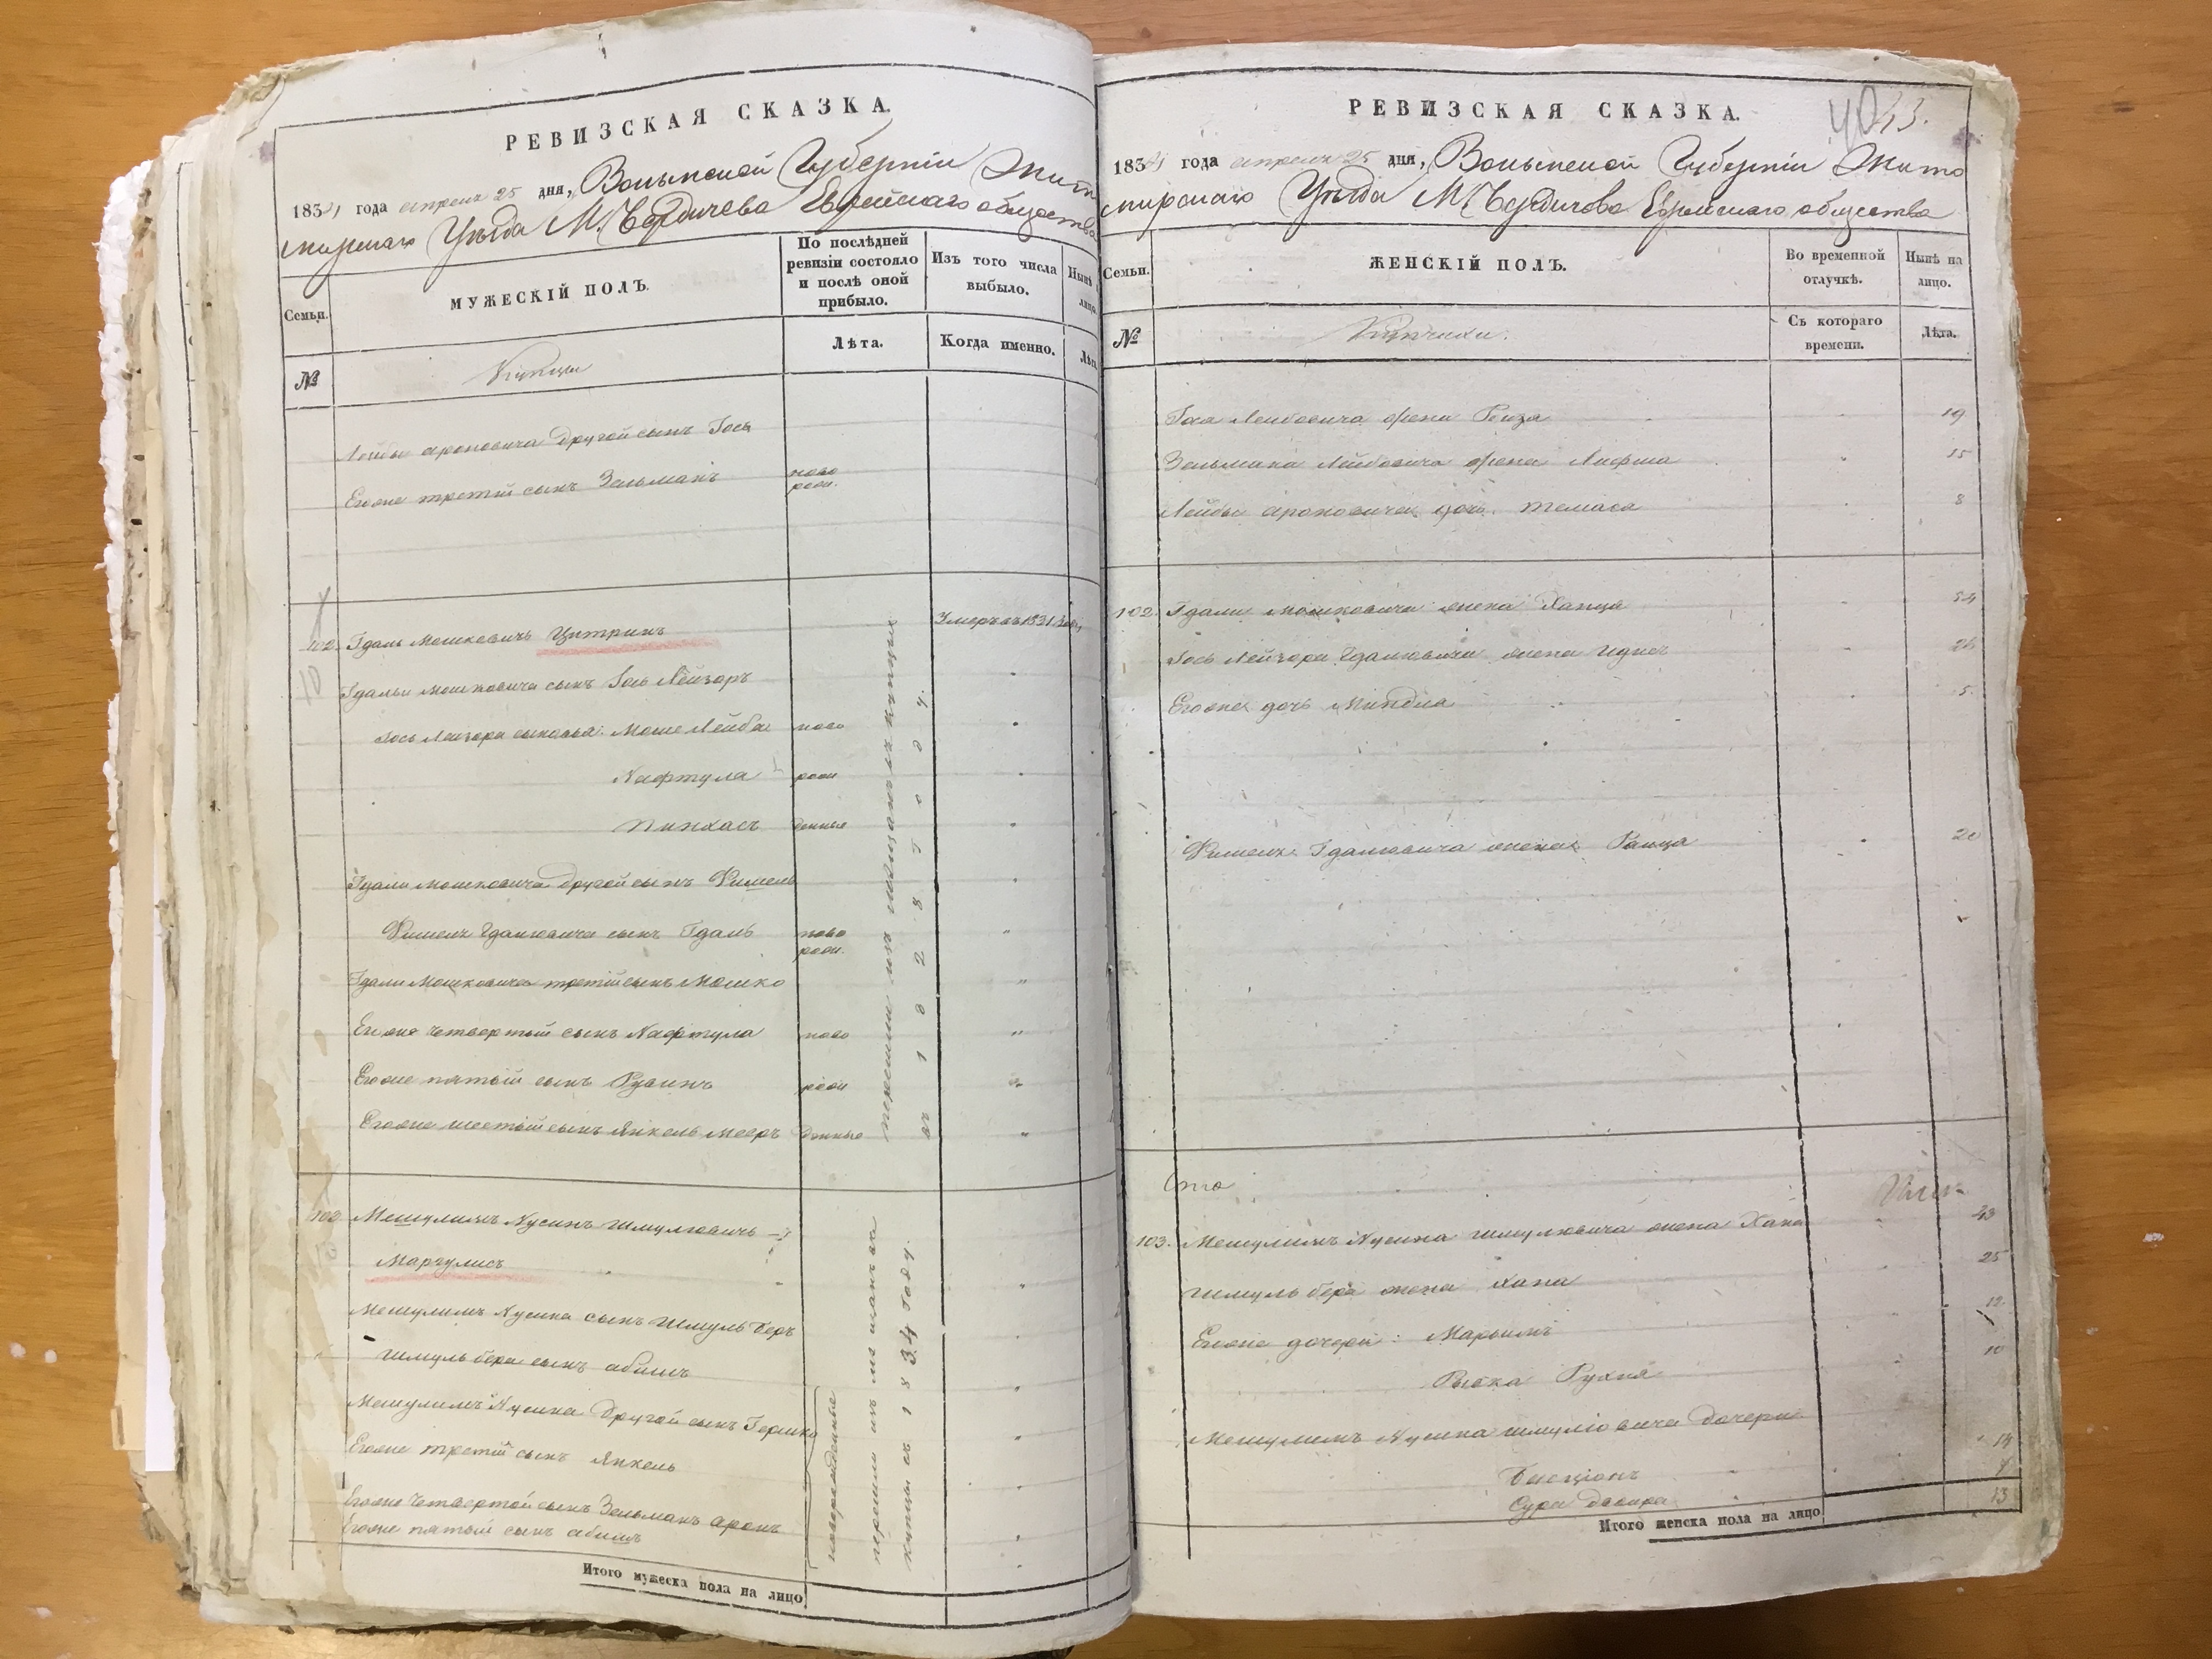 РЕВИЗСКАЯ СКАЗКА.
1834 года апреля 25 дня, Волынской Губернiи Жито
мирскаго Уѣзда М. Бердичева Еврейскаго общества
Семьи.
МУЖЕСКIЙ ПОЛЪ.
По послѣдней ревизiи состояло и послѣ оной прибыло.
Изъ того числа выбыло.
Нынѣ
лицо.
№
Купцы
Лѣта.
Когда именно.
Лѣт
Лейбы Ароновича другой сынъ Гось
Егоже третiй сынъ Зельманъ
ново
рож.
102. Гдаль Мошковичъ Цитринъ
Умеръ въ 1831 году
Гдальи Мошковича сынъ Гось Лейзоръ
Гось Лейзора сыновья: Моше Лейба
ново
Нафтула
рож
Пинхасъ
денные
Гдали Мошковича другой сынъ Фишель
Фишель Гдалювича сынъ Гдаль
ново
рож.
Гдали Мошковича третiй сынъ Мошко
Егоже четвертый сынъ Нафтула
ново
Егоже пятый сынъ Рувинъ
рож
Егоже шестый сынъ Янкель Мееръ
денные
перешли изъ мещанъ въ купцы
въ 1828 году.
103 Мешулимъ Нусинъ Шмулювичъ
Маргулисъ
Мешулимъ Нусина сынъ Шмуль Беръ
Шмуль Бера сынъ Абишъ
Мешулимъ Нусина другой сынъ Гершко
Егоже третiй сынъ Янкель
Егоже четвертой сынъ Зельманъ Аронъ
Егоже пятый сынъ Абишъ
новорожденные
перешли изъ мещанъ въ
купцы въ 1834 году.
Итого мужеска пола на лицо
РЕВИЗСКАЯ СКАЗКА.
40
43.
1834 года апреля 25 дня, Волынской Губернiи Жито
мирскаго Уѣзда М. Бердичева Еврейскаго общества
Семьи.
ЖЕНСКIЙ ПОЛЪ.
Во временной отлучкѣ.
Нынѣ на лицо.
№
Купчихи.
Съ котораго времени.
Лѣта.
Гося Лейбовича жена Рейза 19
Зельмана Лейбовича жена 15
Лейбы Ароновича дочь 8
102. Гдали Мошковича жена Ханца 54
Гось Лейзора Гдалювича жена 26
Егоже дочь Миндля 5.
Фишель Гдалювича жена Ханца 20
103. Мешулимъ Нусина Шмулювича жена Хана 43
Шмуль Бера жена Хана 25
Егоже дочери: Марьимъ 12.
Рыска Рухля 10
Мешулимъ Нусина Шмулювича дочери
Басцiонъ 14
Сура Двойра
13
Итого женска пола на лицо